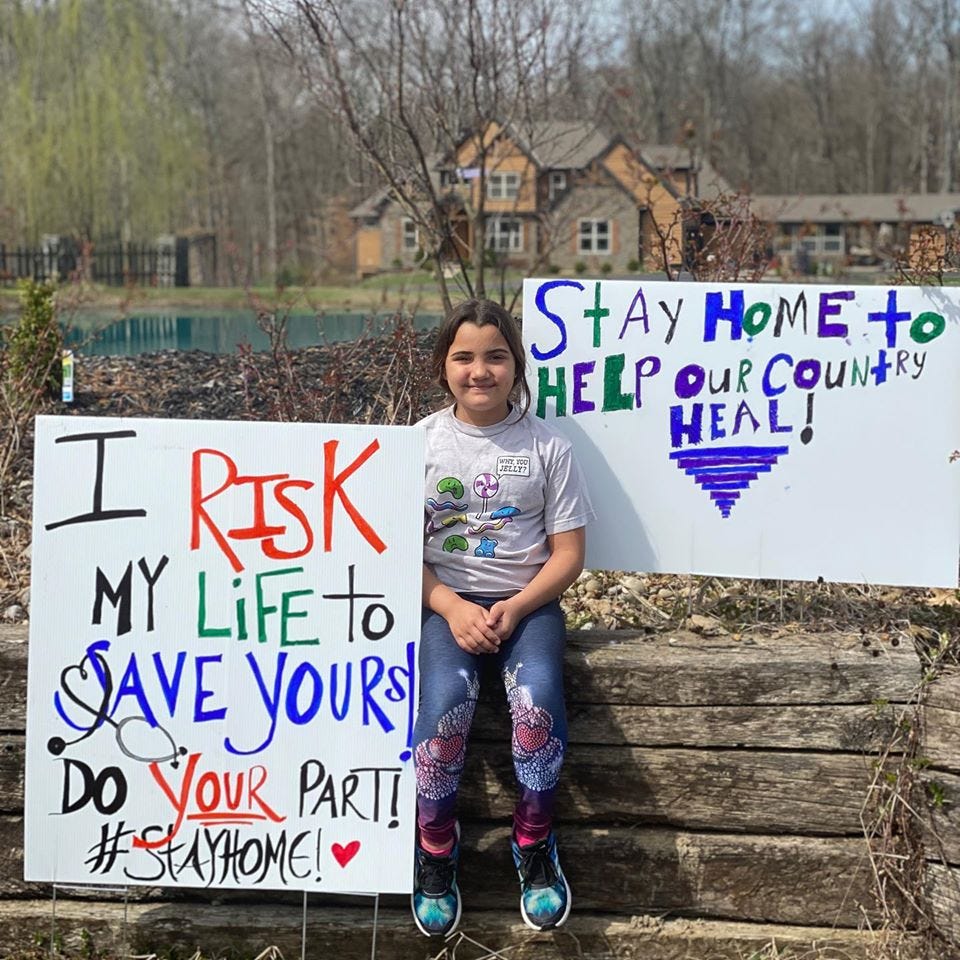 I RISK
MY LiFE to
SAVE YOURS!
DO YOUR PART!
#STAYHOME!
WHY, YOU
JELLY?
STAY HOME to
HELP OUR COUNtRY
HEAL!